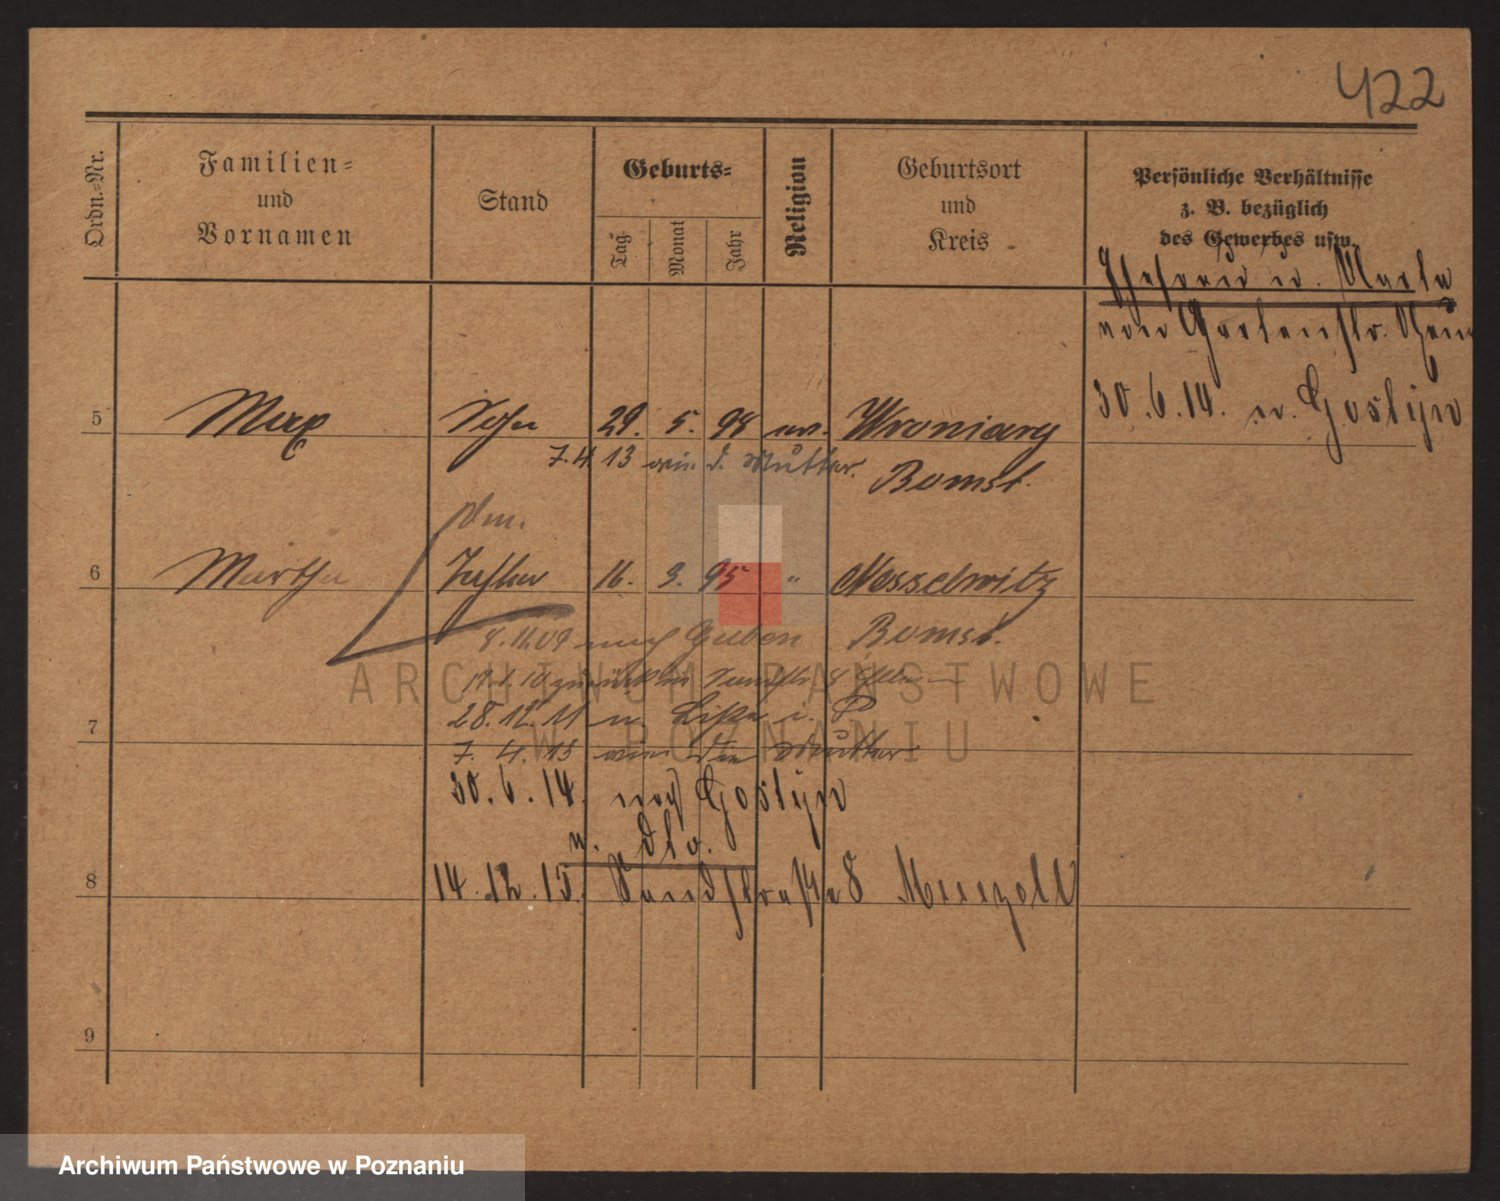 422
Ordn.-Nr.
Familien-
und
Vornamen
Stand
Geburts-
Tag
Monat
Jahr
Religion
Geburtsort
und
Kreis
Persönliche Verhältnisse
z. B. bezüglich
des Gewerbes usw.
Ehefrau u.
von Gartenstr.
30.6.14. n. Gostyn
5 Max Sohn 29. 5. 98 ev. Wroniawy
7.4.13 d. Mutter. Bomst.
6 Martha Tochter 16. 9. 95 " Nosschwitz
nach Guben Bomst.
28.12.11 n. Lissa i. P
7
7. 4. 13 die Mutter
30.6.14. nach Gostyn
n. dto.
8
14.12.15. Sandstraße 8
9
ARCHIWUM PAŃSTWOWE
W POZNANIU
Archiwum Państwowe w Poznaniu